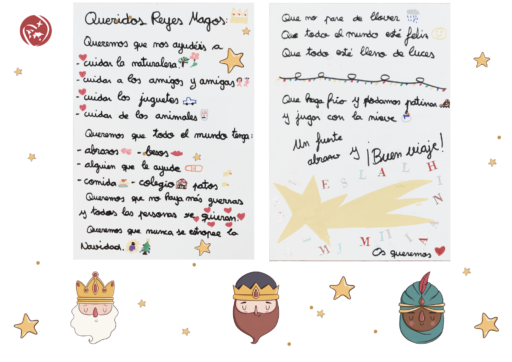 Queridos Reyes Magos:
Queremos que nos ayudéis a
- cuidar la naturaleza
- cuidar a los amigos y amigas
- cuidar los juguetes
- cuidar de los animales
Queremos que todo el mundo tenga:
- abrazos - besos
- alguien que le ayude
- comida - colegio patos
Queremos que no haya más guerras
y todas las personas se quieran.
Queremos que nunca se estropee la
Navidad.
Que no pare de llover
Que todo el mundo esté feliz
Que todo esté lleno de luces
Que haga frío y podamos patinar
y jugar con la nieve
Un fuerte
abrazo y ¡Buen viaje!
Os queremos